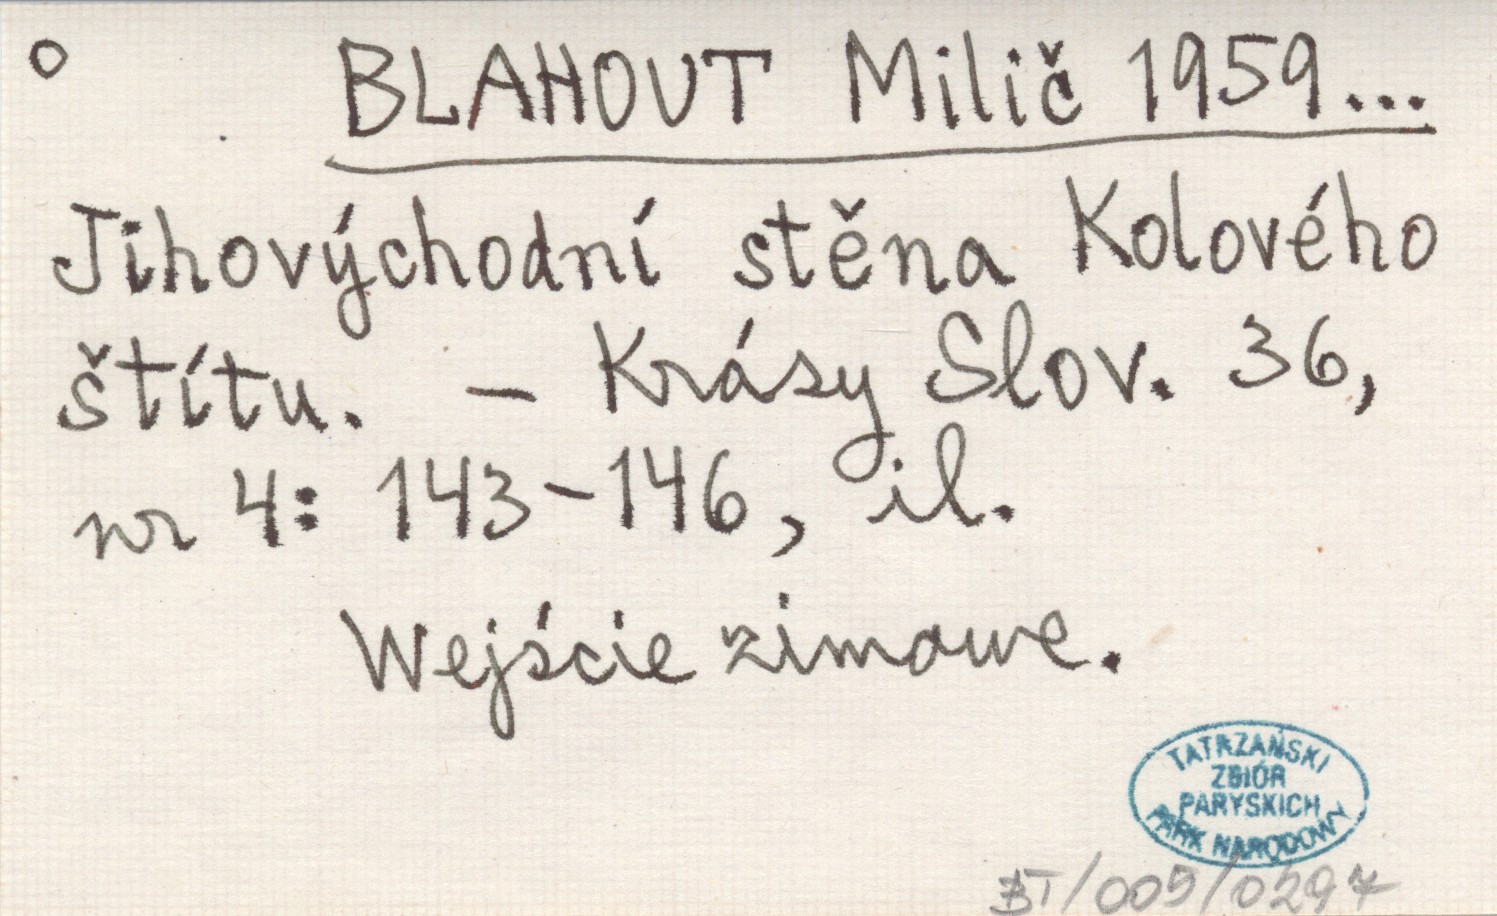 BLAHOUT Milič 1959...
Jihovýchodní stěna Kolového
štítu. – Krásy Slov. 36,
nr 4: 143–146, il.
Wejście zimowe.
TATRZAŃSKI
ZBIÓR
PARYSKICH
PARK NARODOWY
BT/005/0297